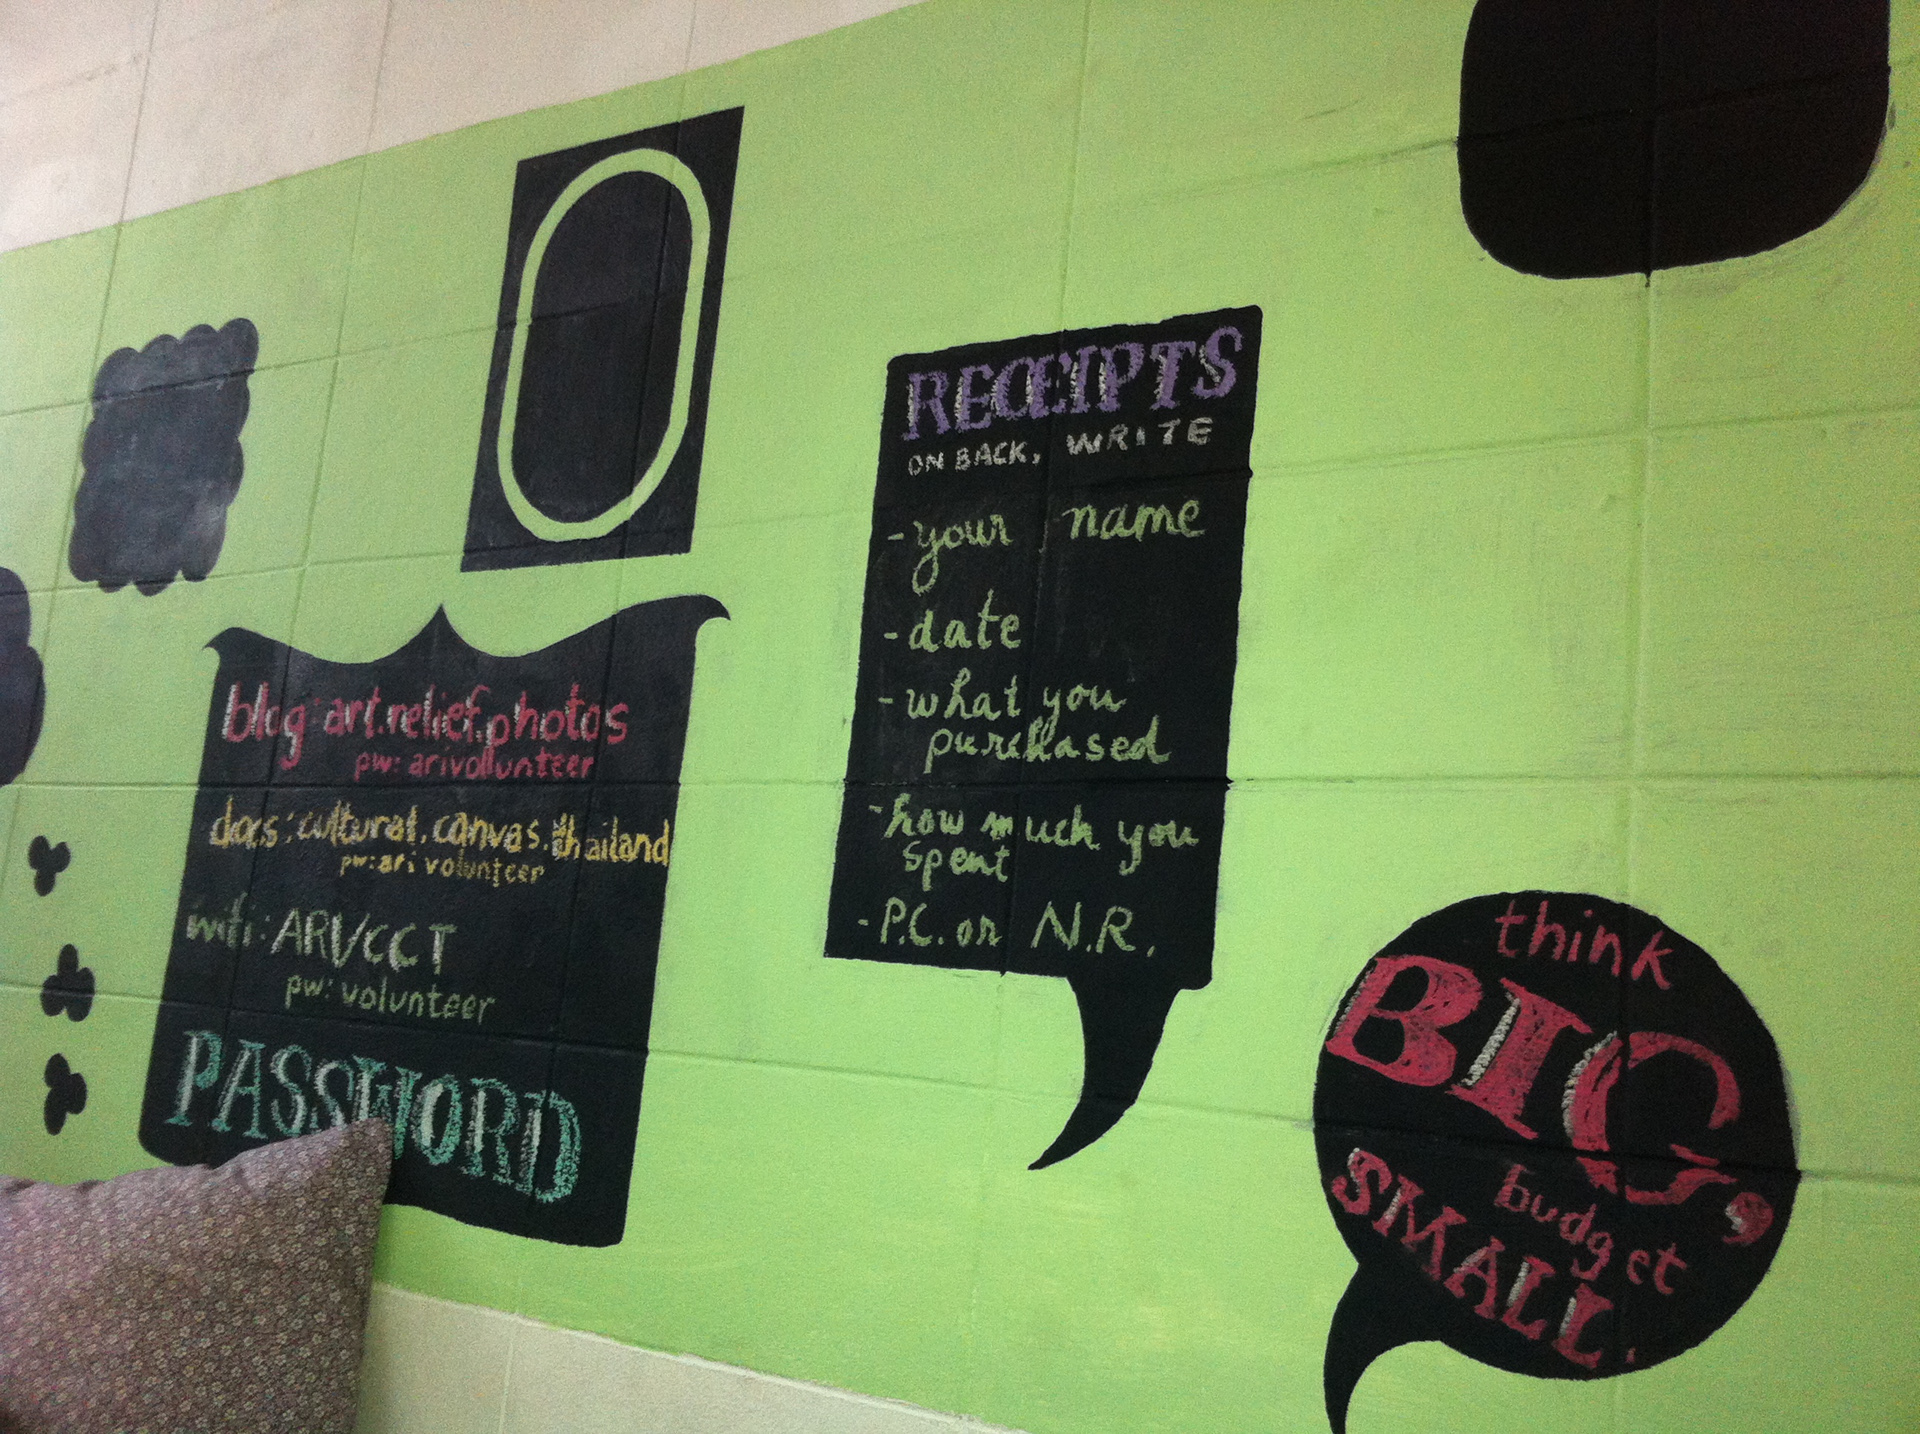 blog: art.relief.photos
pw: arivolunteer
docs: cultural.canvas.thailand
pw: ari volunteer
wifi: ARI/CCT
pw: volunteer
PASSWORD
RECEIPTS
ON BACK, WRITE
- your name
- date
- what you
purchased
- how much you
spent
- P.C. or N.R.
think
BIG,
budget
SMALL.